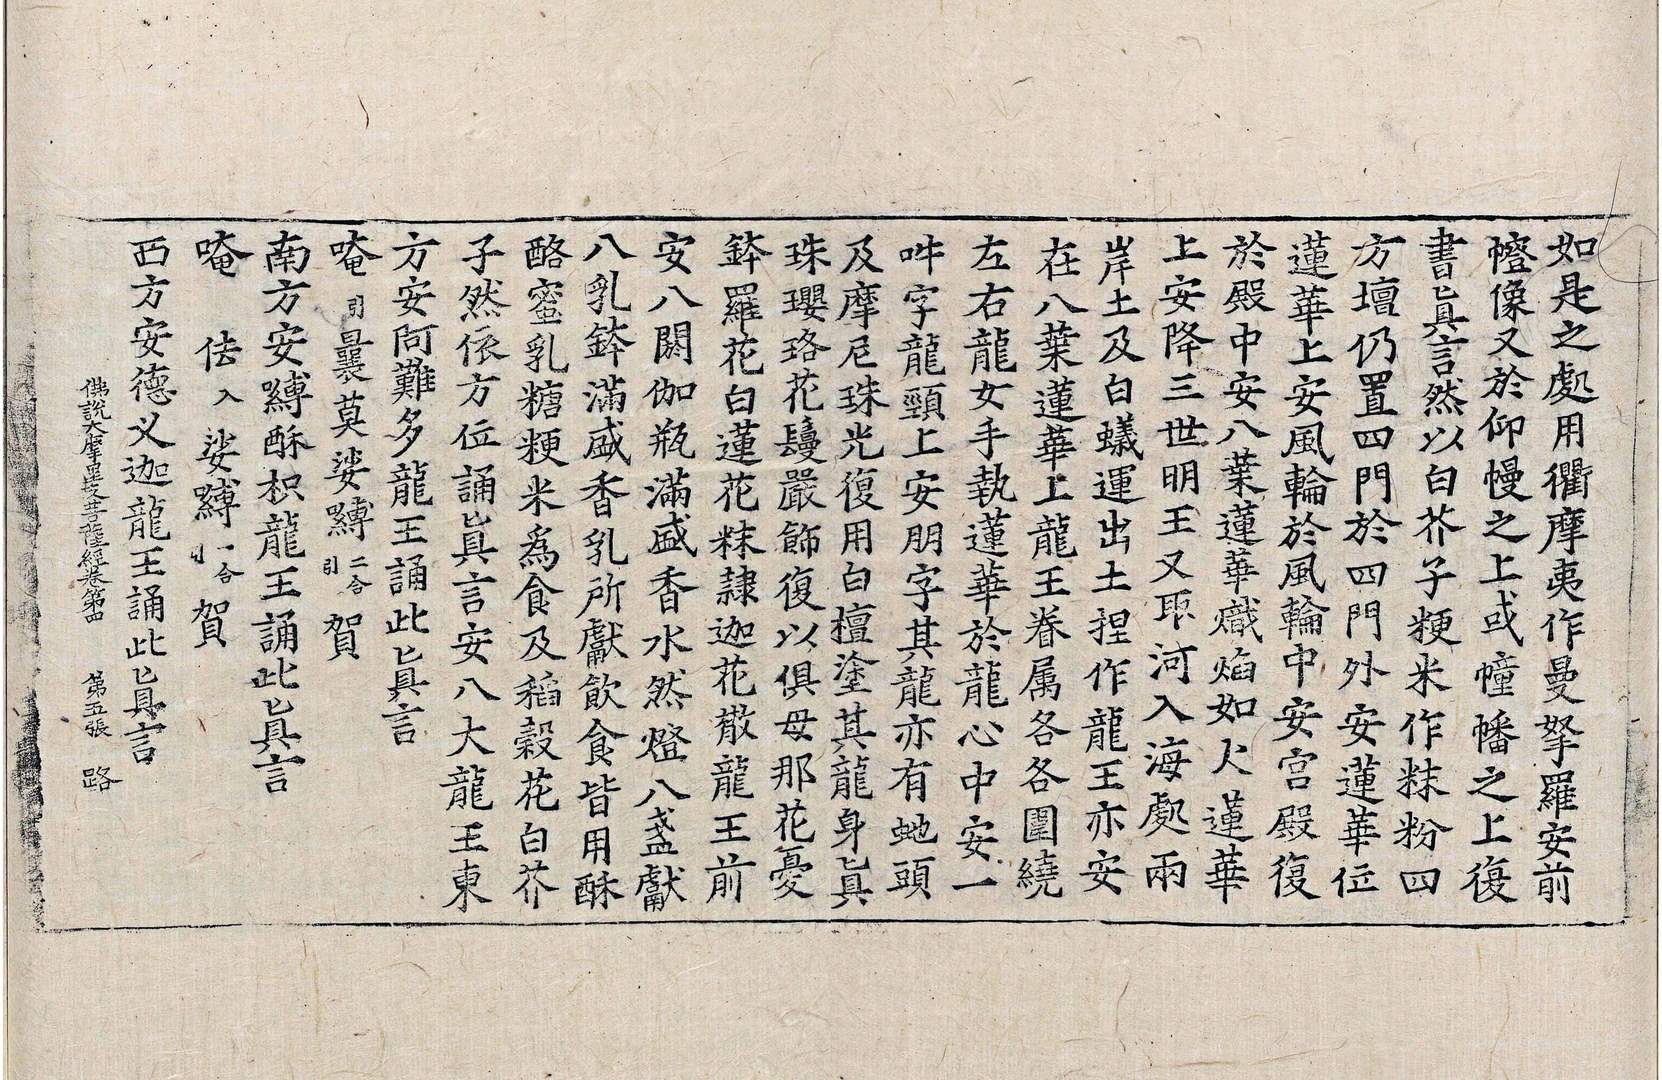 如是之處用衢摩夷作曼拏羅安前
幰像又於仰幔之上或幢幡之上復
書眞言然以白芥子粳米作粖粉四
方壇仍置四門於四門外安蓮華位
蓮華上安風輪於風輪中安宮殿復
於殿中安八葉蓮華熾焰如火蓮華
上安降三世明王又取河入海處兩
岸土及白蟻運出土捏作龍王亦安
在八葉蓮華上龍王眷属各各圍繞
左右龍女手執蓮華於龍心中安一
吽字龍頸上安朋字其龍亦有虵頭
及摩尼珠光復用白檀塗其龍身眞
珠瓔珞花鬘嚴飾復以俱母那花憂
鉢羅花白蓮花粖隷迦花散龍王前
安八閼伽瓶滿盛香水然燈八盞獻
八乳鉢滿盛香乳所獻飲食皆用酥
酪蜜乳糖粳米爲食及稻穀花白芥
子然依方位誦眞言安八大龍王東
方安阿難多龍王誦此眞言
唵引曩莫娑嚩二合引賀
南方安嚩酥枳龍王誦此眞言
唵 佉入 娑嚩一合引賀
西方安德义迦龍王誦此眞言
佛說大摩里支菩薩經卷第四 第五張 路